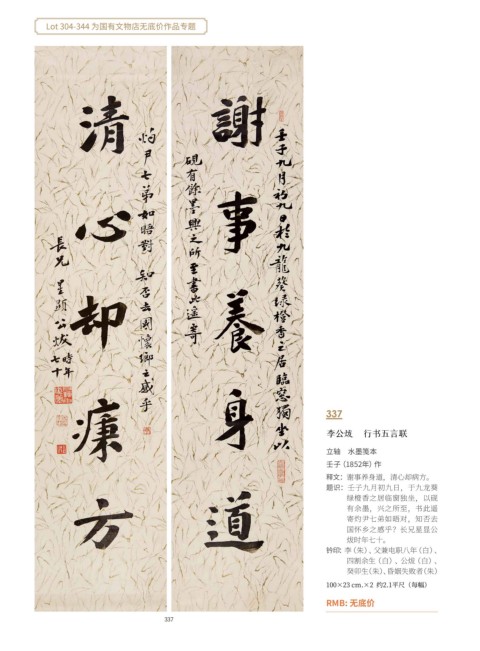 Lot 304-344 为国有文物店无底价作品专题
謝事養身道
壬子九月初九日於九龍葵綠橙香之居臨窓獨坐以
硯有餘墨興之所至書此遥寄
清心却痛方
灼尹七弟如晤對 知否去國懷鄉之感乎
長兄星顯公炦時年七十
337
337
李公炦 行书五言联
立轴 水墨笺本
壬子（1852年）作
释文：谢事养身道，清心却病方。
题识：壬子九月初九日，于九龙葵
绿橙香之居临窗独坐，以砚
有余墨，兴之所至，书此遥
寄灼尹七弟如晤对，知否去
国怀乡之感乎？长兄星显公
炦时年七十。
钤印：李（朱）、父兼电职八年（白）、
四割余生（白）、公炦（白）、
癸卯生（朱）、昏姻失败者（朱）
100×23 cm.×2 约2.1平尺（每幅）
RMB: 无底价